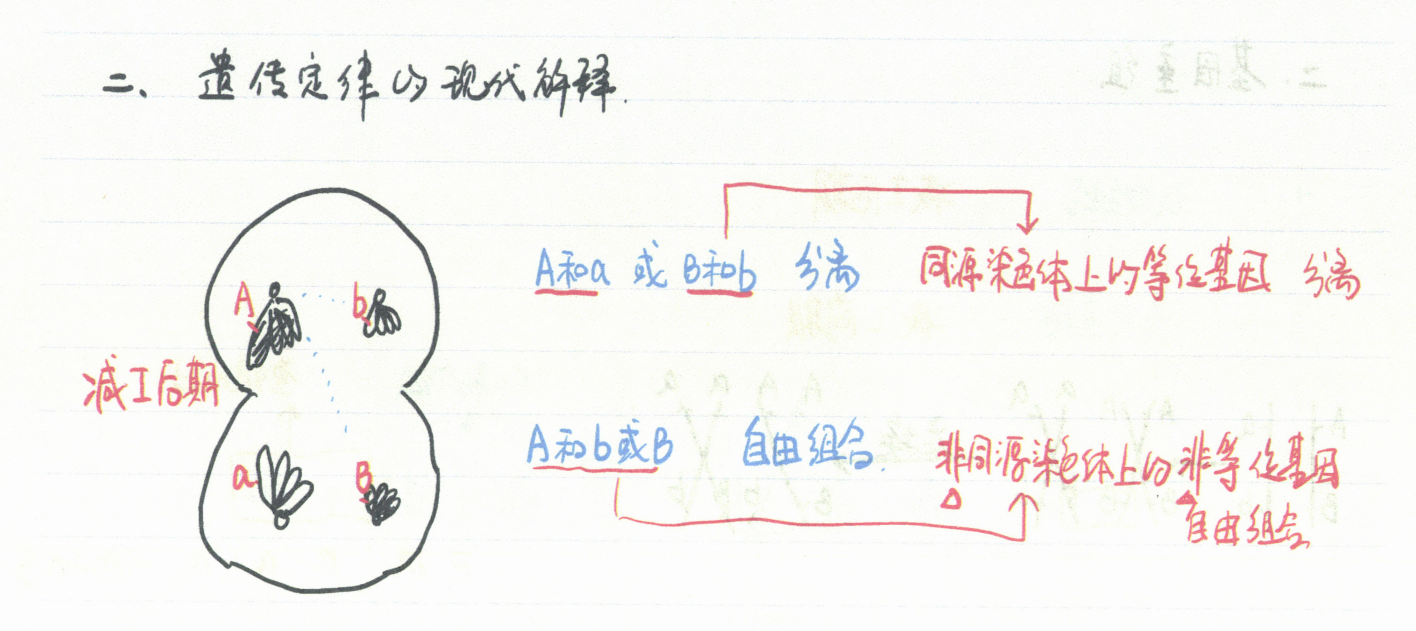 二、遗传定律的现代解释.
A和a 或 B和b 分离 同源染色体上的等位基因 分离
A b
减I后期
a B
A和b或B 自由组合. 非同源染色体上的非等位基因
自由组合